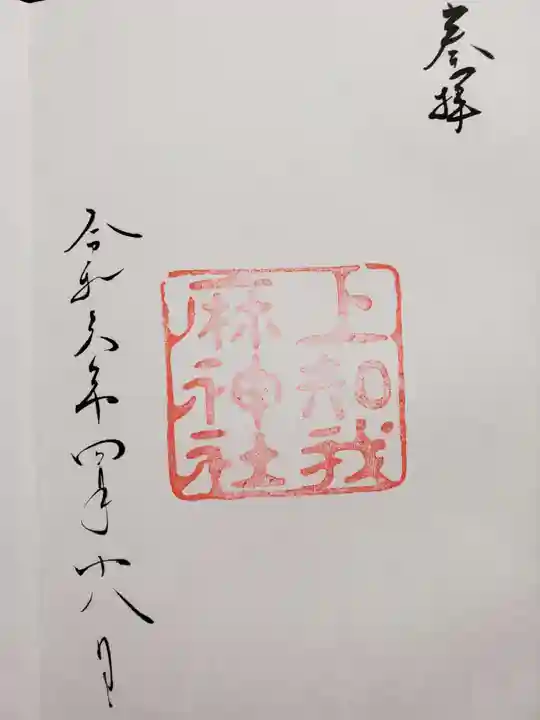 奉拝
上知我
麻神社
令和六年四月廿八日